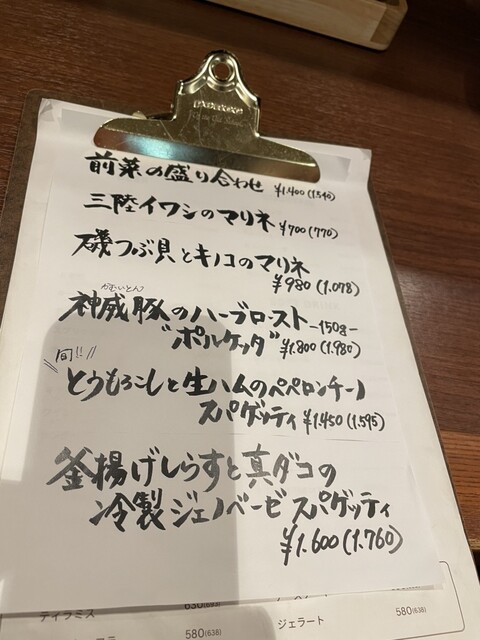 前菜の盛り合わせ ¥1.400(1.540)
三陸イワシのマリネ ¥700(770)
磯つぶ貝とキノコのマリネ
¥980(1.078)
かむいとん
神威豚のハーブロースト -150g-
"ポルケッタ" ¥1.800(1.980)
旬!!
とうもろこしと生ハムのペペロンチーノ
スパゲッティ ¥1.450(1.595)
釜揚げしらすと真ダコの
冷製ジェノベーゼスパゲッティ
¥1.600(1.760)
ティラミス
580(638)
ジェラート 580(638)